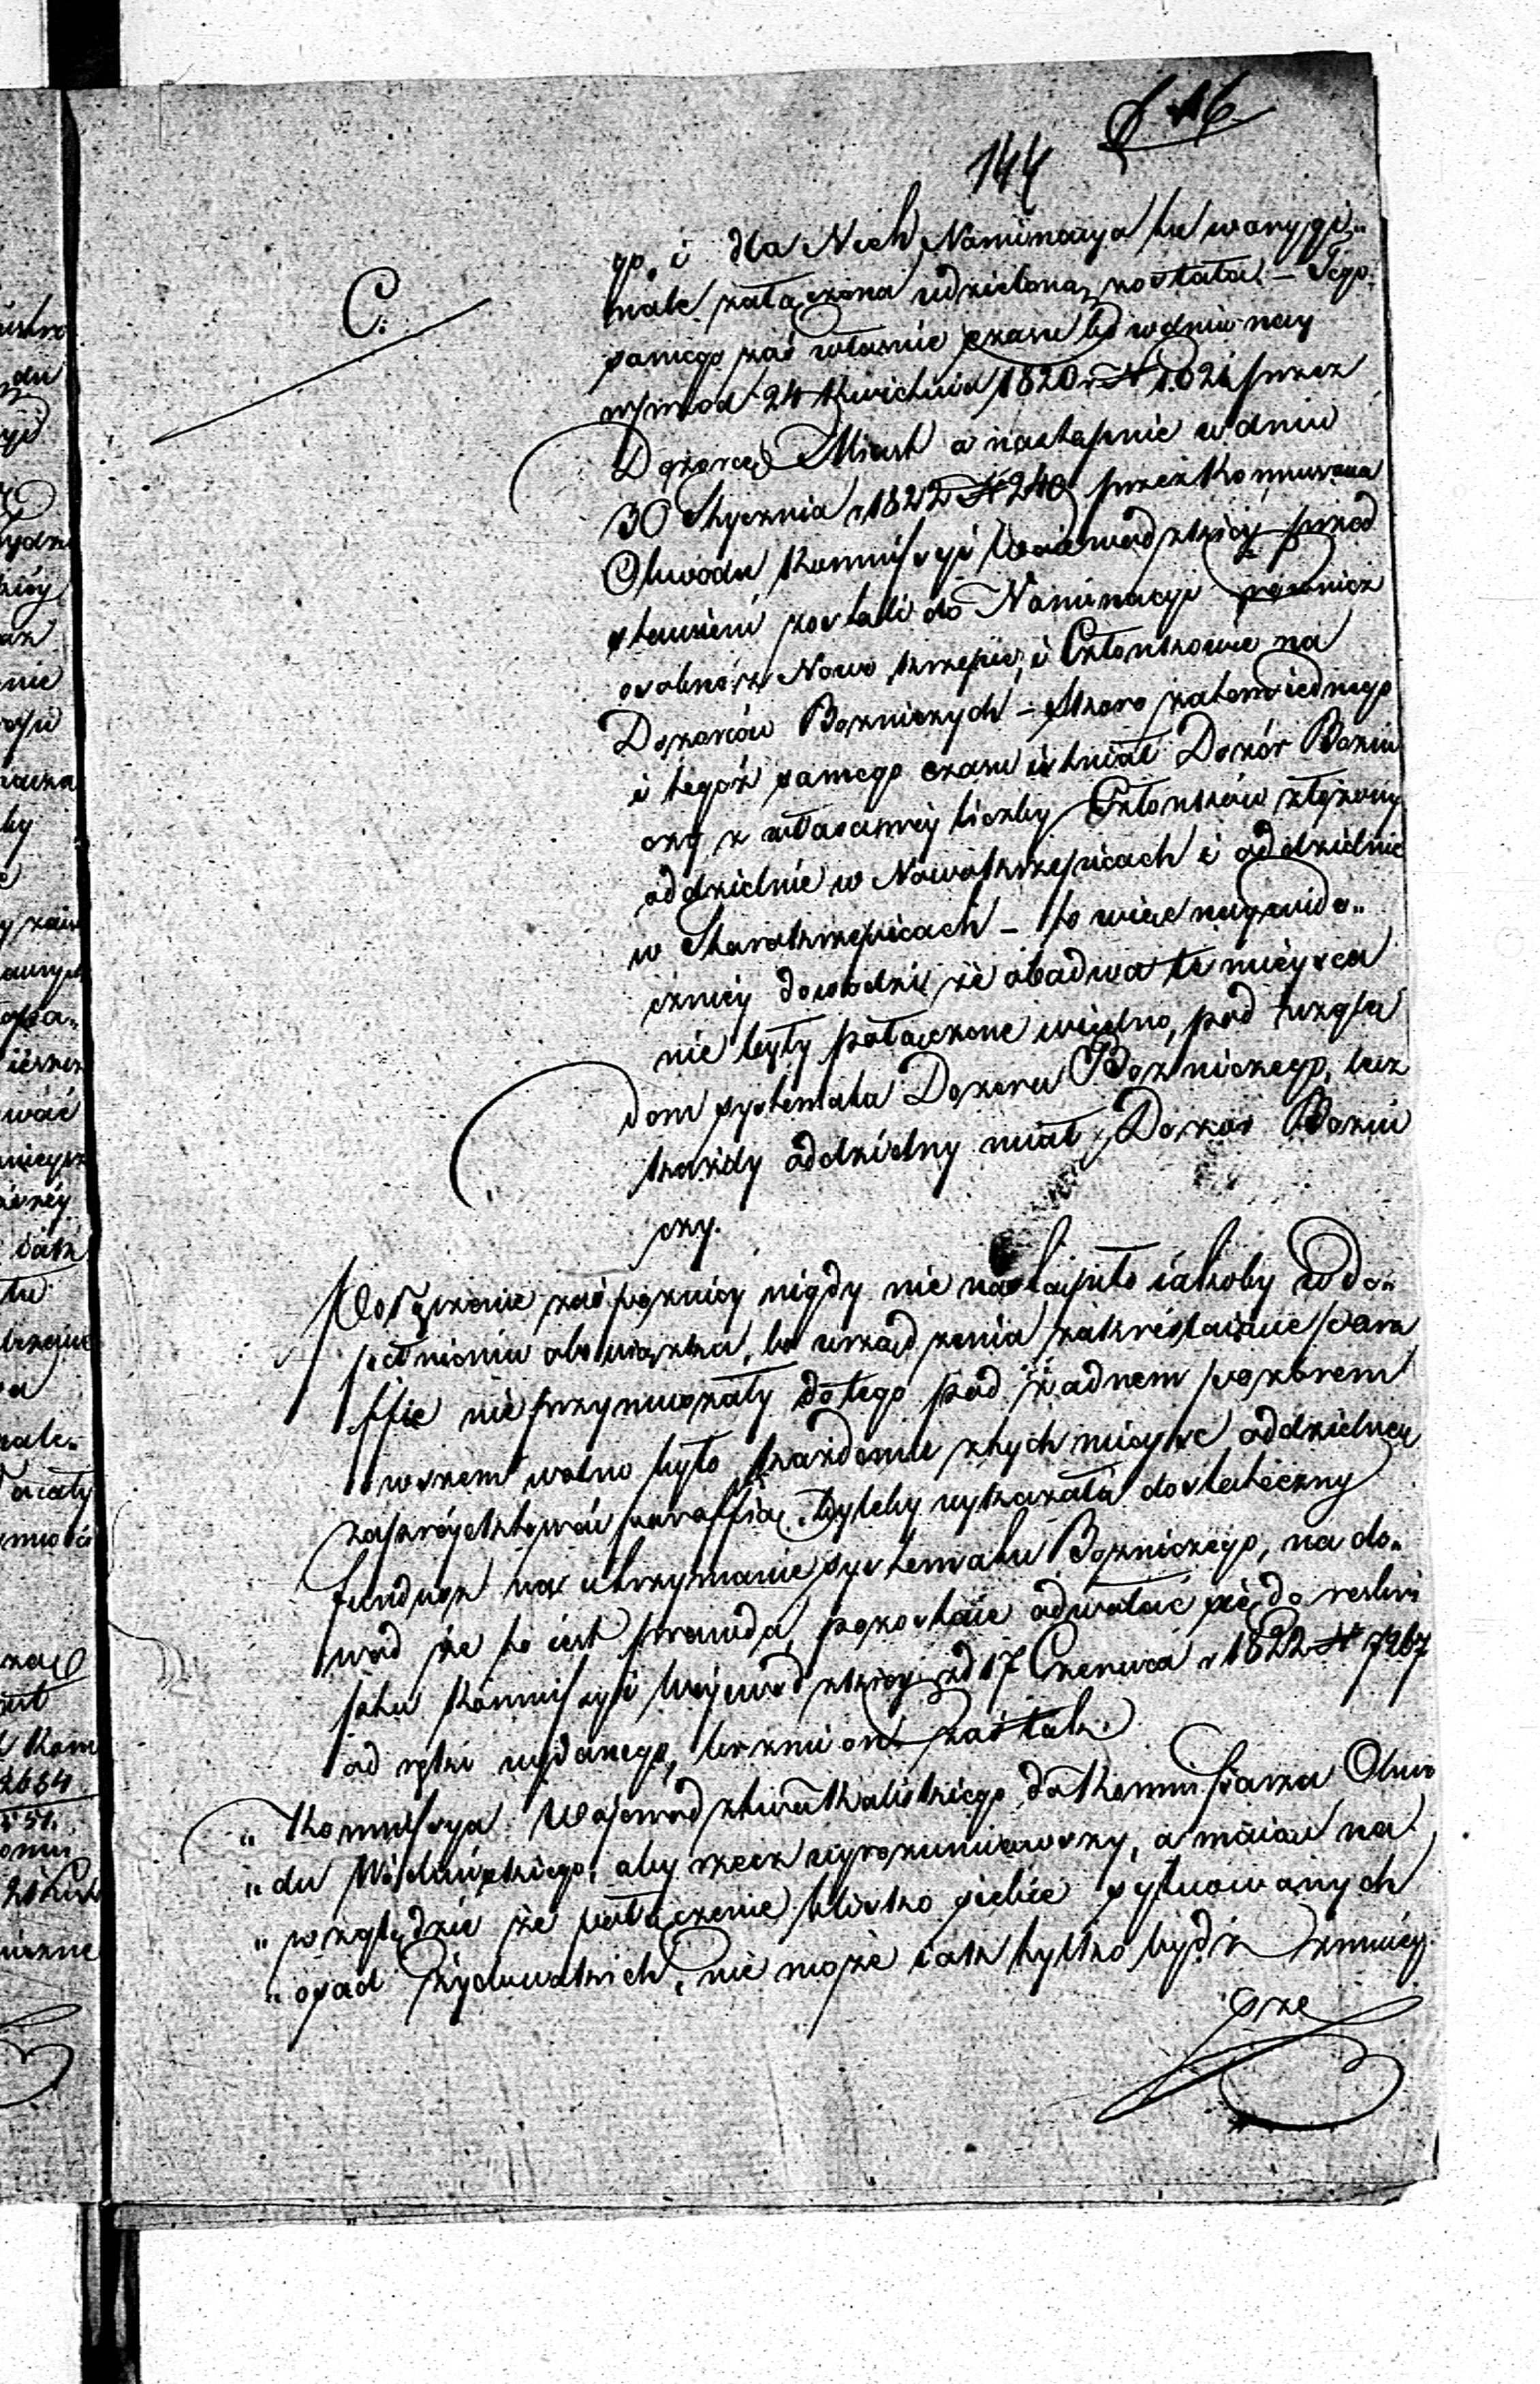 144
C.
go. i dla Nich Nominacya tu w orygi„
nale załączona udzielona została. – Tego.
samego zaś właśnie czasu bo w dniu nay
wprzod 24 Kwietnia 1820 r. N 1.621 przez
Dozorcę Miast a następnie w dniu
30 Stycznia r 1822 N 240 przez Kommissarza
Obwodu Kommissyi Woiewodzkiey przed
stawieni zostali do Nominacyi również
osobno z Nowo Krzepic, i Członkowie na
Dozorców Bożniczych – Skoro zatem iednego
i tegoż samego czasu istniał Dozór Bożni
czy z właściwey liczby Członków złożony
oddzielnie w Nowokrzepicach i oddzielnie
w Starokrzepicach – to więc naywido„
czniey dowodzi że obadwa te mieysca
nie były połączone w iedno, pod wzglę
dem systematu Dozoru Bożniczego, lecz
każdy oddzielny miał Dozór Bożni
czy.
Połączenie zaś pozniey nigdy nie nastąpiło iakoby w do„
pełnieniu obowiązku, bo urządzenia zakreślaiące para
ffie nie przymuszały do tego pod żadnem pozorem
owszem wolno było każdemu z tych mieysc oddzielną
zaproiektować paraffią. byleby wykazała dostateczny
fundusz na utrzymanie systematu Bożniczego, na do„
wod że to iest prawda, pozostaie odwołać się do reskry
ptu Kommissyi Woiewodzkiey z d 17 Czerwca r 1822 N 7267
od ręki wydanego, brzmi on zaś tak.
„ Kommissya Woiewodztwa Kaliskiego do Kommissarza Obwo
„ du Wieluńskiego, aby rzecz wyrozumiawszy, a maiąc na
„ względzie że połączenie blisko siebie sytuowanych
„ osad żydowskich, nie może iak tylko bydź zmniey
sze